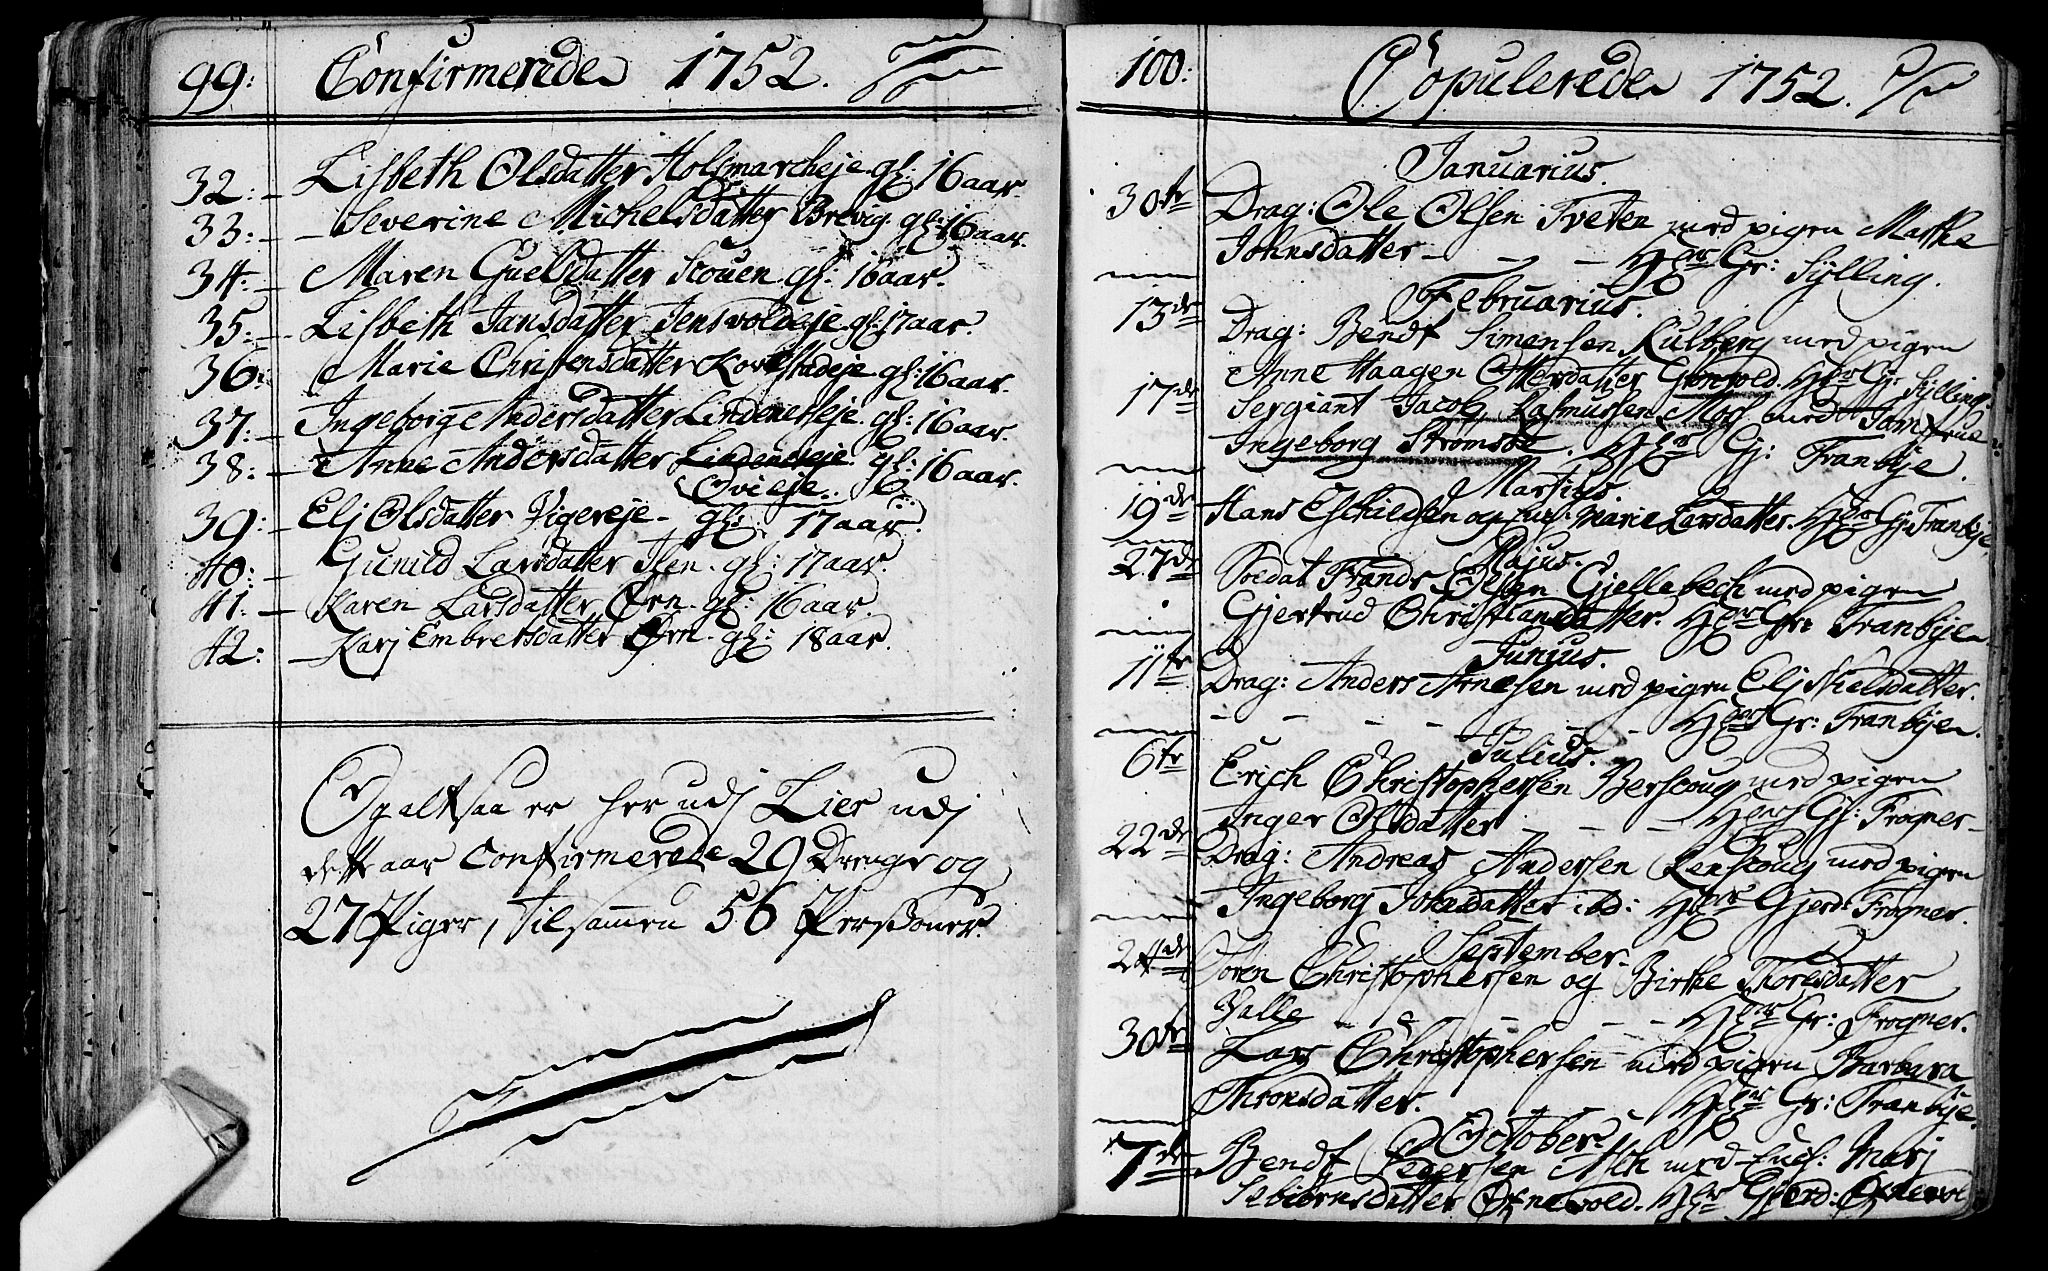 99: Confirmerede 1752.
32: Lisbeth Olsdatter Holsmarcheje gl: 16 aar.
33: Severine Michelsdatter Brevig. gl: 16 aar.
34. Maren Guelsdatter Scouen. gl: 16 aar.
35: Lisbeth Jansdatter Jensvoldeje gl: 17 aar.
36: Marie Christensdatter gl: 16 aar.
37: Ingeborg Andersdatter Lindeneseje. gl: 16 aar.
38: Anne Andersdatter gl: 16 aar.
Ovieje.
39: Elj Olsdatter Vigereje. gl: 17 aar.
40: Gunild Larsdatter Ilen. gl: 17 aar.
41: Karen Larsdatter Ørn. gl: 16 aar.
42: Karj Embretsdatter Ørn. gl: 18 aar.
Og altsaa er her udj Lier udj
dette aar confirmerede 29 Drenge og
27 Piger, tilsammen 56 Persohner.
100: Copulerede 1752.
Januarius.
30te Drag: Ole Olsen Tveten med pigen Marthe
Johnsdatter - - - Hter Gr: Sylling.
Februarius.
13de Drag: Bendt Simensen Kulberg med pigen
Anne Haagen Ottersdatter Hter Gr: Sylling.
17de Sergiant Jacob Rasmussen Moss med Jomfrue
Ingeborg Strømsøe. Hter Gj: Tranbye.
Martius.
19de Hans Eschieldsen og Enche: Marie Larsdatter. Hter Gr: Tranbye
Majus.
27de Soldat Frands Olsen Gjellebech med pigen
Gjertrud Christiansdatter. Hter Gr: Tranbye.
Junius.
11te Drag: Anders Arnesen med pigen Elj Nielsdatter.
- - - - - - Hter Gr: Tranbyen.
Julius.
6te Erich Christophersen Berscoug med pigen
Inger Olsdatter - - - Hter Gj: Frogner.
22de Drag: Andreas Andersen Renscoug med pigen
Ingeborg Johnsdatter ibd: Hter Gjerd: Frogner.
September.
24de Søren Christophersen og Birthe Thoresdatter
Valle - - - - - - Hter Gr: Frogner.
30te Lars Christophersen med pigen Barbara
Thronsdatter. Hter Gr: Tranbye.
October.
7de Bendt Pedersen Asch med Enche: Marj
Sebiørnsdatter Hter Gjerd: